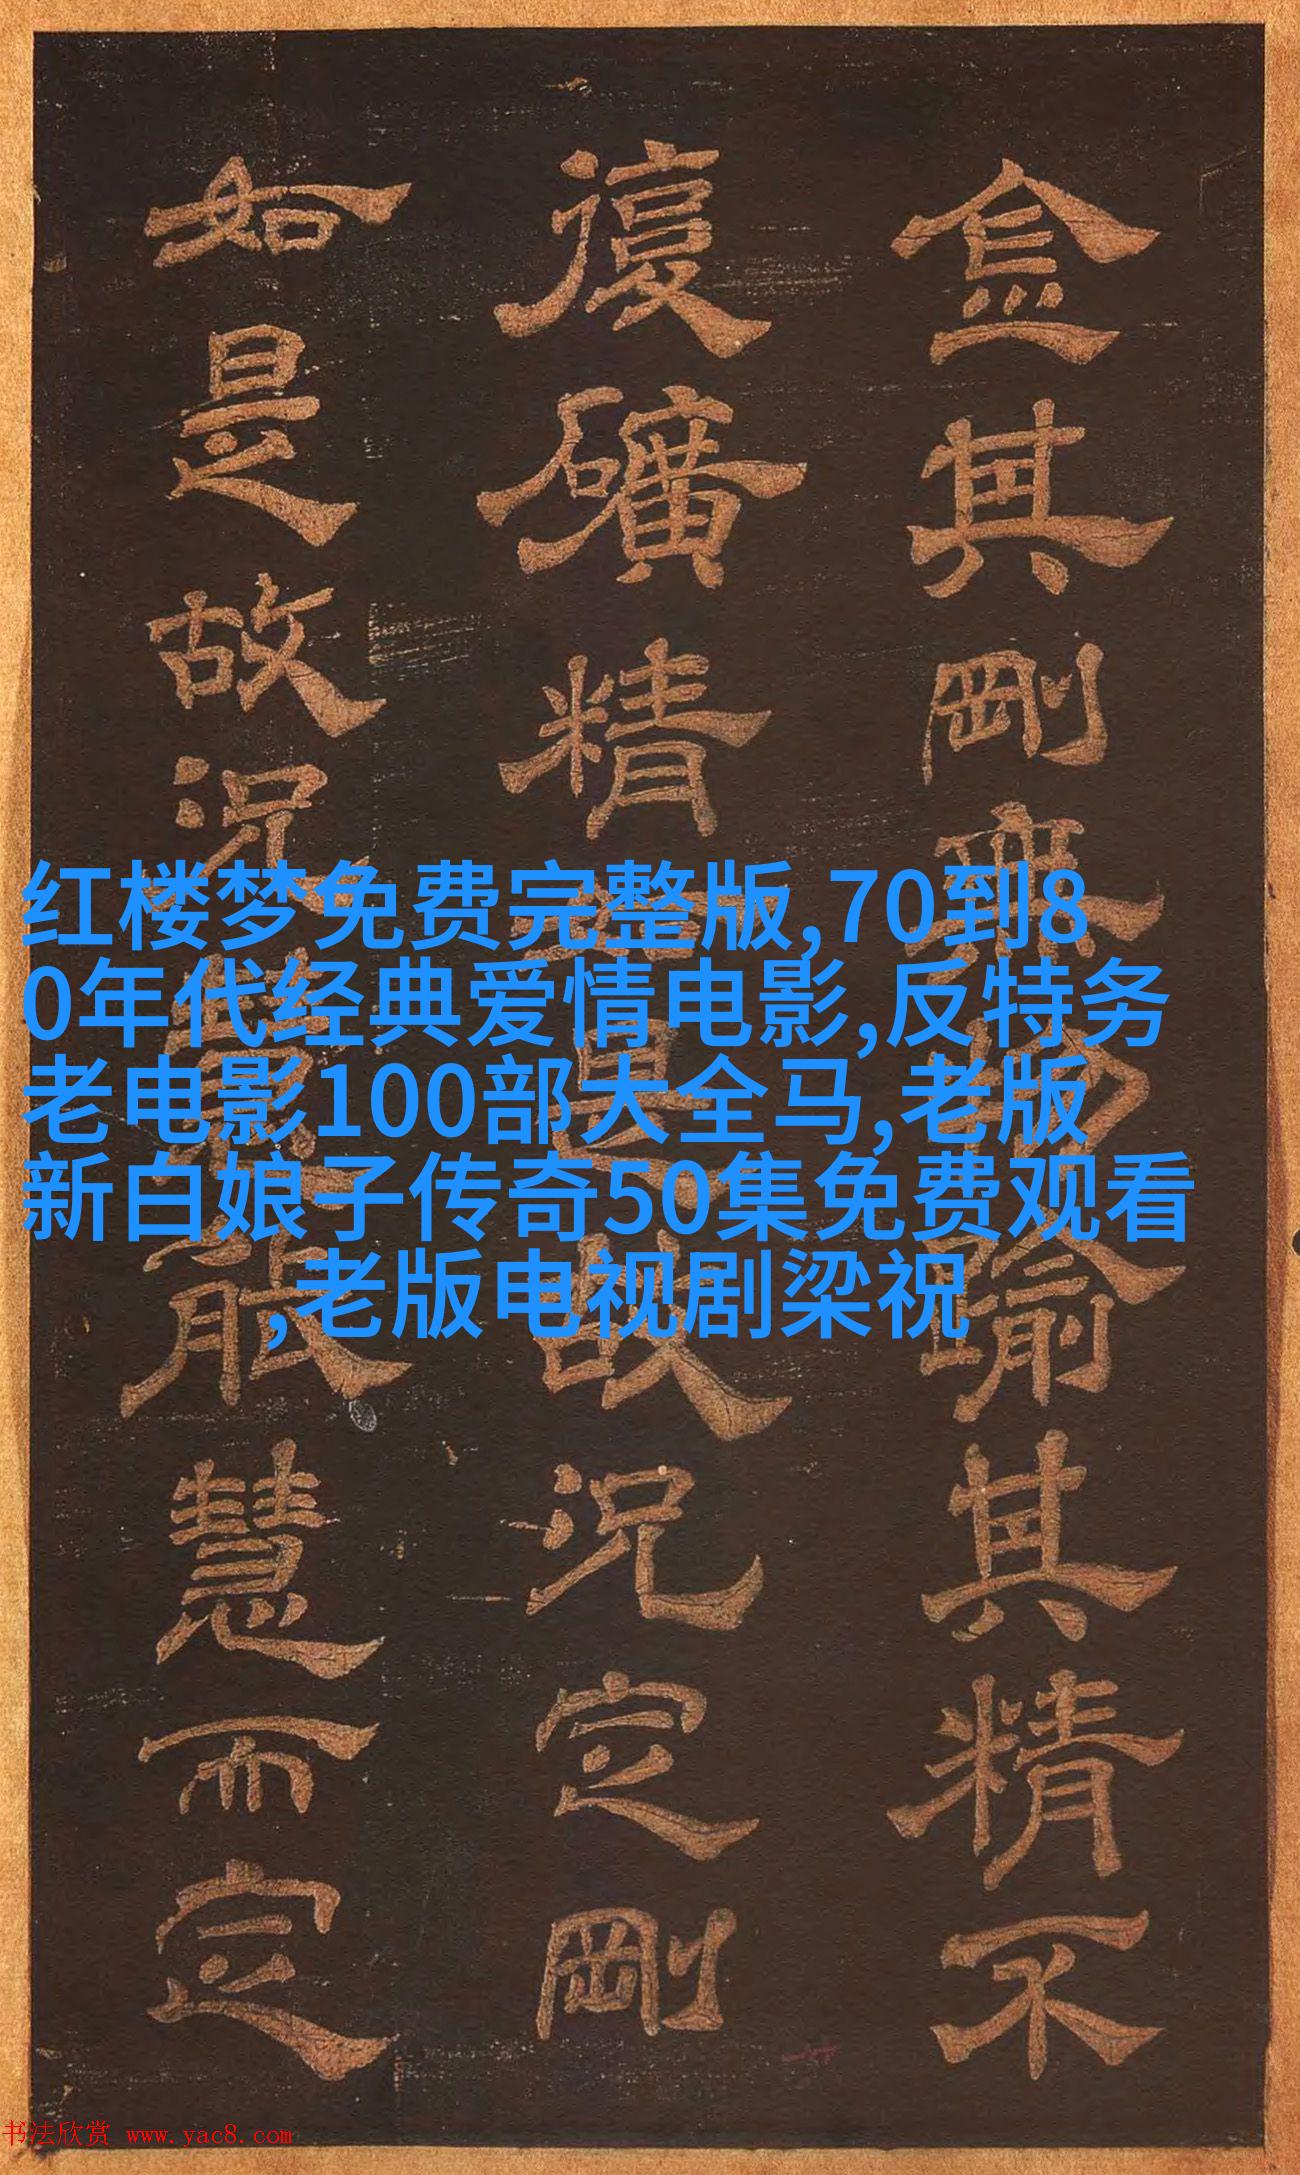 其剛無踰其精不
復礦精真故況定剛
如是故況能慧而定
红楼梦免费完整版,70到8
0年代经典爱情电影,反特务
老电影100部大全马,老版
新白娘子传奇50集免费观看
,老版电视剧梁祝
书法欣赏 www.yac8.com